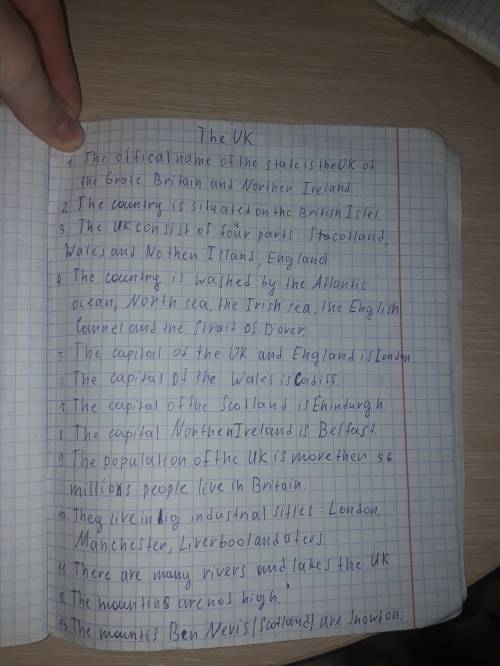 The UK
1. The offical name of the state is the UK of
the Grate Britain and Northen Ireland
2. The country is situated on the British Isles.
3. The UK consist of four parts: Stocotland,
Wales and Nothen Island, England.
4. The country is washed by the Atlantic
ocean, North sea, the Irish sea, the English
Cannel and the Strait of Dover.
5. The capitail of the UK and England is London
6. The capital of the Wales is Cardiff.
7. The capital of the Scotland is Ehinburgh.
8. The capital Northen Ireland is Belfast.
9. The population of the UK is more then 56
millions people live in Britain.
10. They live in big industrial sities: London,
Manchester, Liverbool and oters.
11. There are many rivers and lakes the UK.
12. The mountins are not high.
13. The mountis Ben Nevis (Scotland) are Snowton.